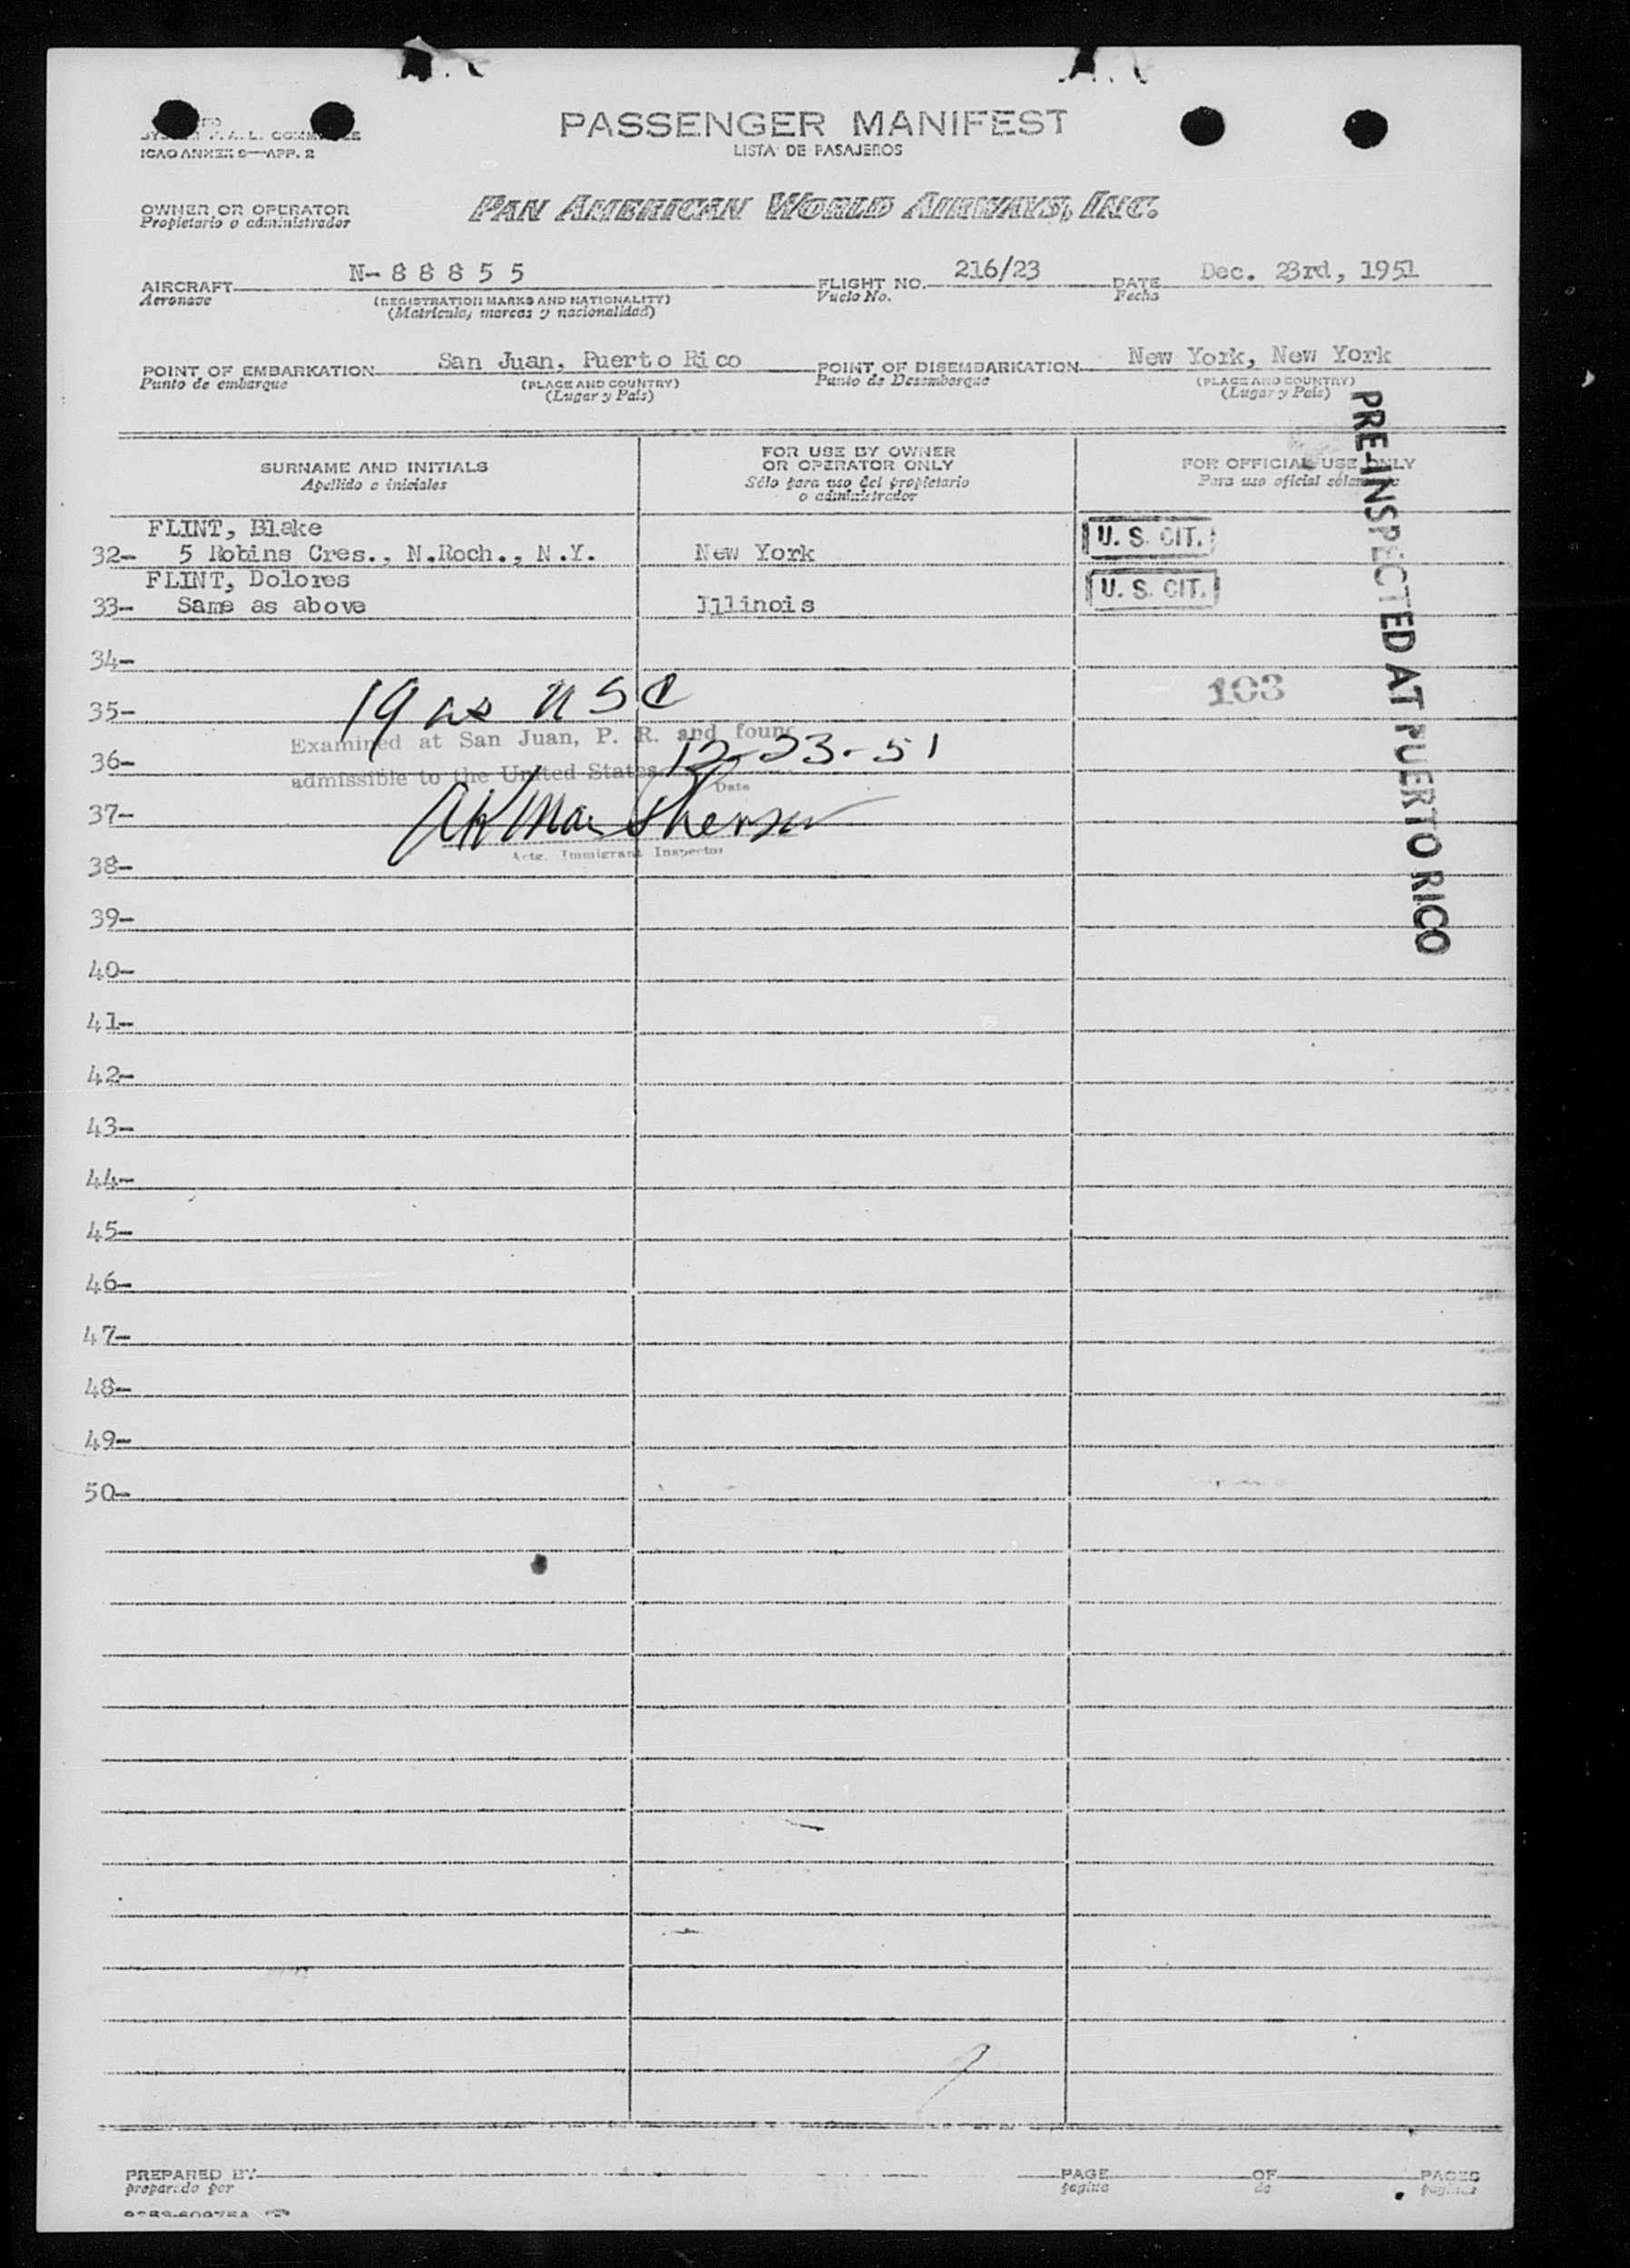 ICAO ANNEX 9—APP. 2
PASSENGER MANIFEST
LISTA DE PASAJEROS
OWNER OR OPERATOR
Propietario o administrador
PAN AMERICAN WORLD AIRWAYS, INC.
AIRCRAFT N-88855 FLIGHT NO. 216/23 DATE Dec. 23rd, 1951
Aeronave (REGISTRATION MARKS AND NATIONALITY) Vuelo No. Fecha
(Matricula, marcas y nacionalidad)
POINT OF EMBARKATION San Juan, Puerto Rico POINT OF DISEMBARKATION New York, New York
Punto de embarque (PLACE AND COUNTRY) Punto de Desembarque (PLACE AND COUNTRY)
(Lugar y País) (Lugar y País)
PRE-INSPECTED AT PUERTO RICO
SURNAME AND INITIALS FOR USE BY OWNER OR OPERATOR ONLY FOR OFFICIAL USE ONLY
Apellido e iniciales Sólo para uso del propietario o administrador Para uso oficial
FLINT, Blake
32- 5 Robins Cres., N.Roch., N.Y. New York U. S. CIT.
FLINT, Dolores
33- Same as above Illinois U. S. CIT.
34-
35- 19 as USC 103
Examined at San Juan, P. R. and found
36- 12-23-51
admissible to the United States
Date
37-
Actg. Immigrant Inspector
38-
39-
40-
41-
42-
43-
44-
45-
46-
47-
48-
49-
50-
PREPARED BY PAGE OF PAGES
preparado por página de páginas